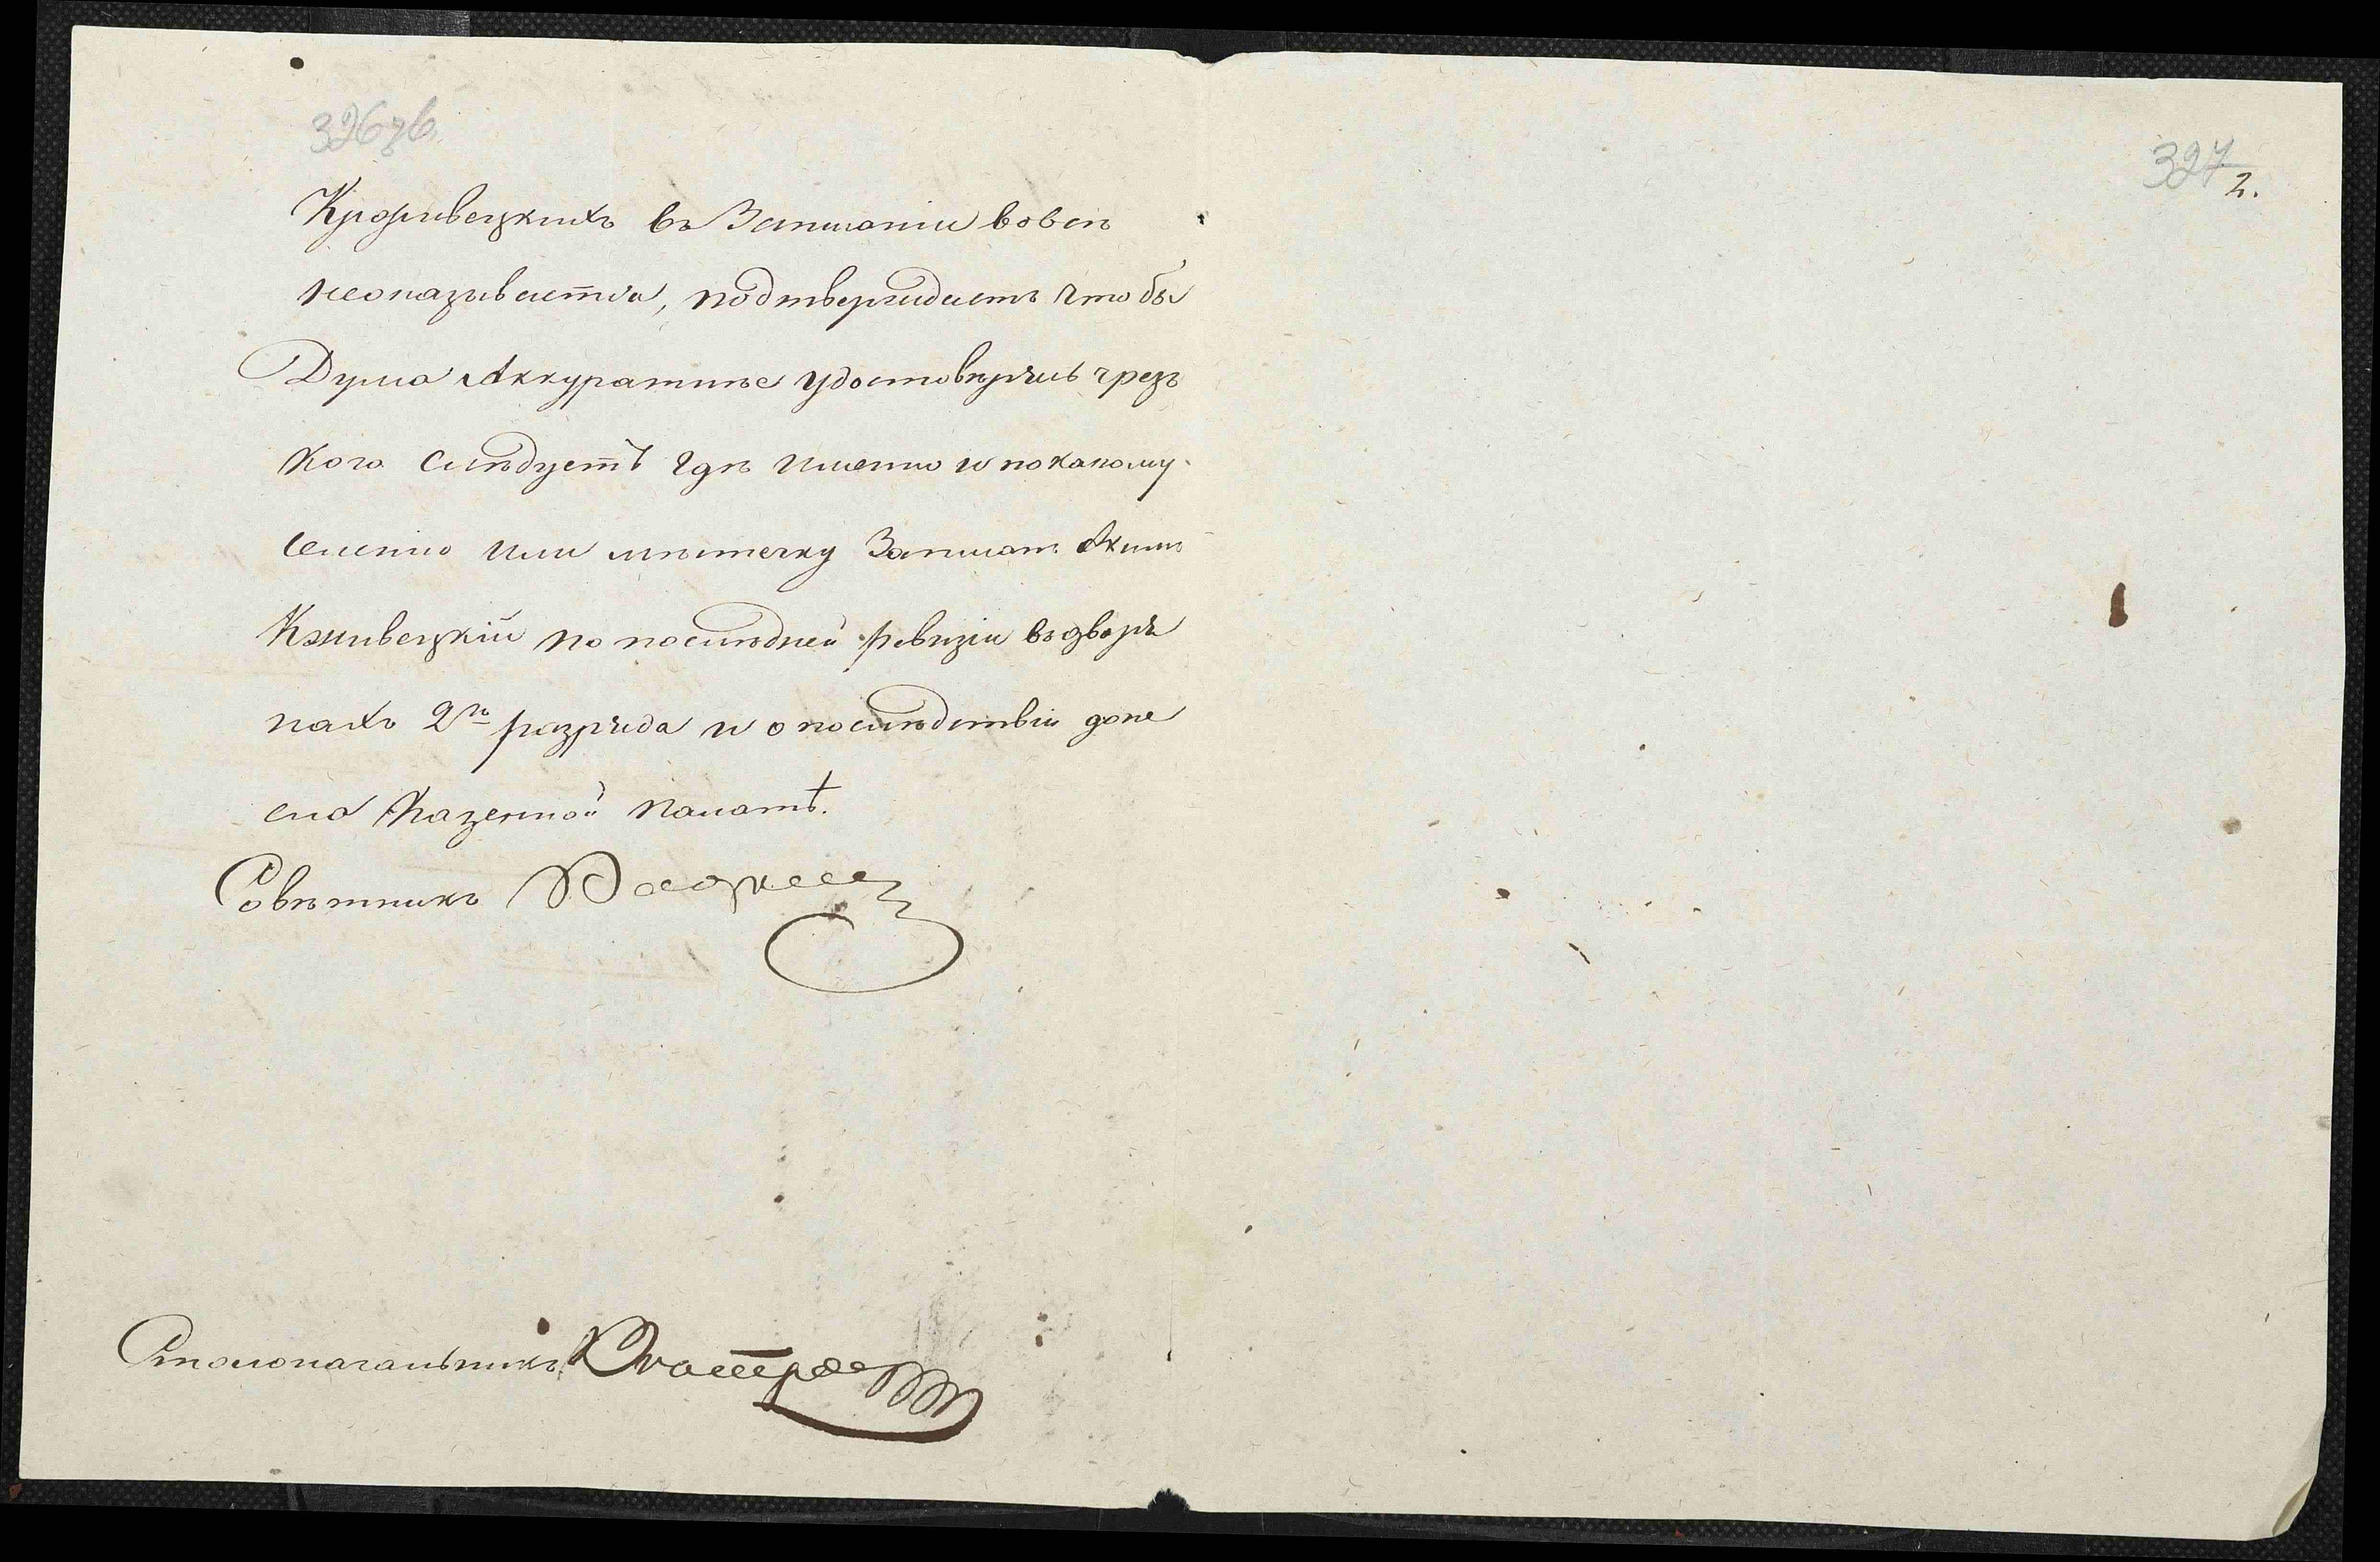 326 зв
327
2.
Крживецкихъ въ Записаніи вовсѣ
неоказывается, подтверждаетъ чтобы
Дума Аккуратнѣе удостовѣрясь чрезъ
кого слѣдуетъ гдѣ именно и по какому
селенію или мѣстечку Записанъ Якимъ
Кживецкій по послѣдней ревизіи въ дворя
нахъ 2го разряда и о послѣдствіи доне
сла Казенной Палатѣ.
Совѣтникъ
Столоначальникъ